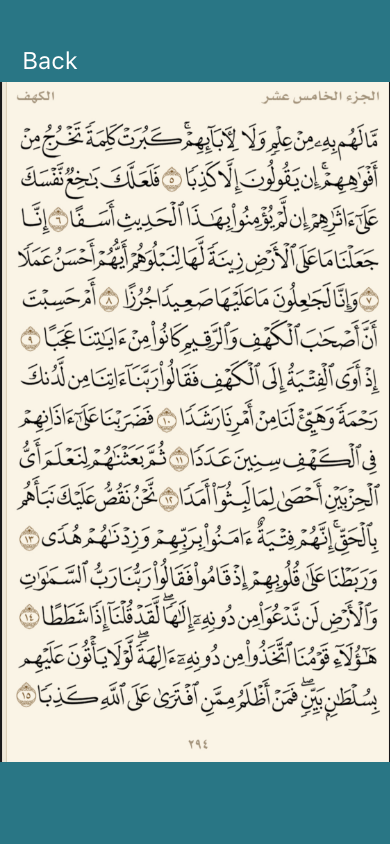 Back
الجزء الخامس عشر الكهف
مَّا لَهُم بِهِۦ مِنْ عِلْمٍ وَلَا لِءَابَآئِهِمْ ۚ كَبُرَتْ كَلِمَةً تَخْرُجُ مِنْ
أَفْوَٰهِهِمْ ۚ إِن يَقُولُونَ إِلَّا كَذِبًا ٥ فَلَعَلَّكَ بَٰخِعٌ نَّفْسَكَ
عَلَىٰٓ ءَاثَٰرِهِمْ إِن لَّمْ يُؤْمِنُوا۟ بِهَٰذَا ٱلْحَدِيثِ أَسَفًا ٦ إِنَّا
جَعَلْنَا مَا عَلَى ٱلْأَرْضِ زِينَةً لَّهَا لِنَبْلُوَهُمْ أَيُّهُمْ أَحْسَنُ عَمَلًا
٧ وَإِنَّا لَجَٰعِلُونَ مَا عَلَيْهَا صَعِيدًا جُرُزًا ٨ أَمْ حَسِبْتَ
أَنَّ أَصْحَٰبَ ٱلْكَهْفِ وَٱلرَّقِيمِ كَانُوا۟ مِنْ ءَايَٰتِنَا عَجَبًا ٩
إِذْ أَوَى ٱلْفِتْيَةُ إِلَى ٱلْكَهْفِ فَقَالُوا۟ رَبَّنَآ ءَاتِنَا مِن لَّدُنكَ
رَحْمَةً وَهَيِّئْ لَنَا مِنْ أَمْرِنَا رَشَدًا ١٠ فَضَرَبْنَا عَلَىٰٓ ءَاذَانِهِمْ
فِى ٱلْكَهْفِ سِنِينَ عَدَدًا ١١ ثُمَّ بَعَثْنَٰهُمْ لِنَعْلَمَ أَىُّ
ٱلْحِزْبَيْنِ أَحْصَىٰ لِمَا لَبِثُوٓا۟ أَمَدًا ١٢ نَّحْنُ نَقُصُّ عَلَيْكَ نَبَأَهُم
بِٱلْحَقِّ ۚ إِنَّهُمْ فِتْيَةٌ ءَامَنُوا۟ بِرَبِّهِمْ وَزِدْنَٰهُمْ هُدًى ١٣
وَرَبَطْنَا عَلَىٰ قُلُوبِهِمْ إِذْ قَامُوا۟ فَقَالُوا۟ رَبُّنَا رَبُّ ٱلسَّمَٰوَٰتِ
وَٱلْأَرْضِ لَن نَّدْعُوَا۟ مِن دُونِهِۦٓ إِلَٰهًا ۖ لَّقَدْ قُلْنَآ إِذًا شَطَطًا ١٤
هَٰٓؤُلَآءِ قَوْمُنَا ٱتَّخَذُوا۟ مِن دُونِهِۦٓ ءَالِهَةً ۖ لَّوْلَا يَأْتُونَ عَلَيْهِم
بِسُلْطَٰنٍۭ بَيِّنٍ ۖ فَمَنْ أَظْلَمُ مِمَّنِ ٱفْتَرَىٰ عَلَى ٱللَّهِ كَذِبًا ١٥
٢٩٤